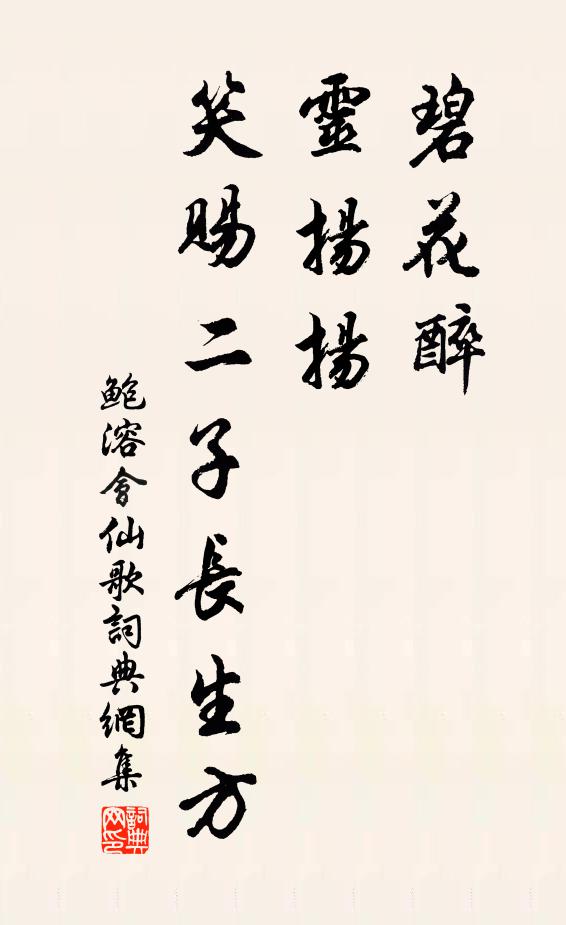 碧花醉
靈揚揚
笑賜二子長生方
鮑溶會仙歌詞典網集
詞典網印